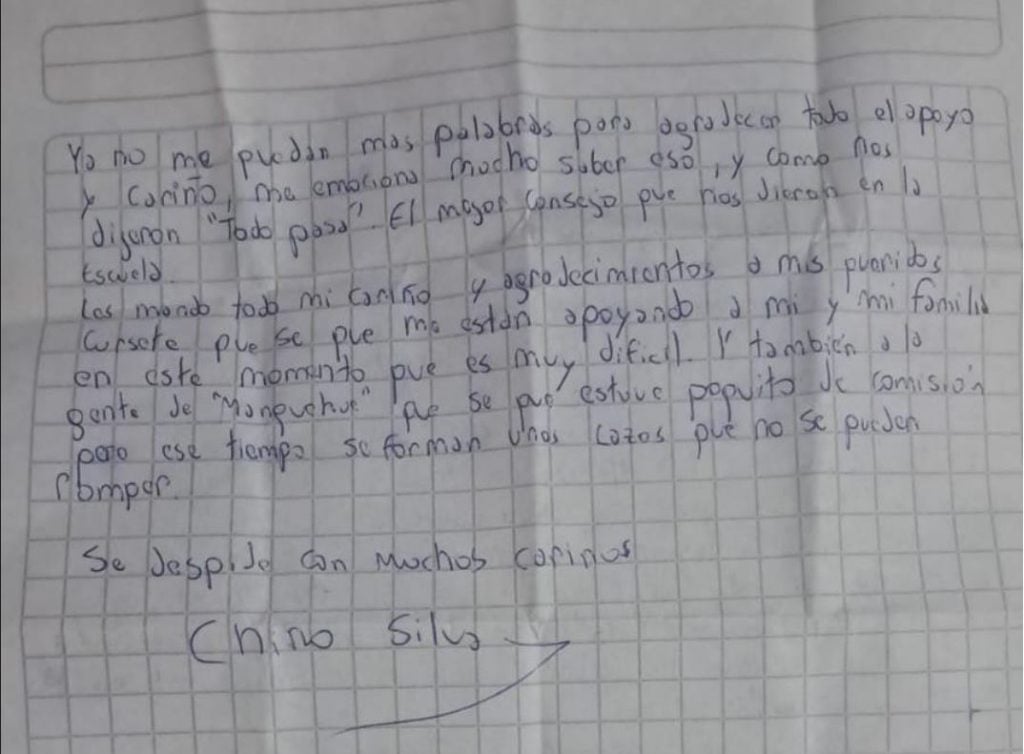 Ya no me puedan mas palabras para agradecer todo el apoyo
y cariño, me emociona mucho saber eso, y como nos
dijeron "Todo pasa". El mayor consejo que nos dieron en la
Escuela.
Les mando todo mi cariño y agradecimientos a mis queridos
Cursete que se que me están apoyando a mi y mi familia
en este momento que es muy dificil. Y también a la
gente de "Manquehue" que se que estuve poquito de comisión
pero ese tiempo se forman unos lazos que no se pueden
romper.
Se despide con muchos cariños
Chino Silva